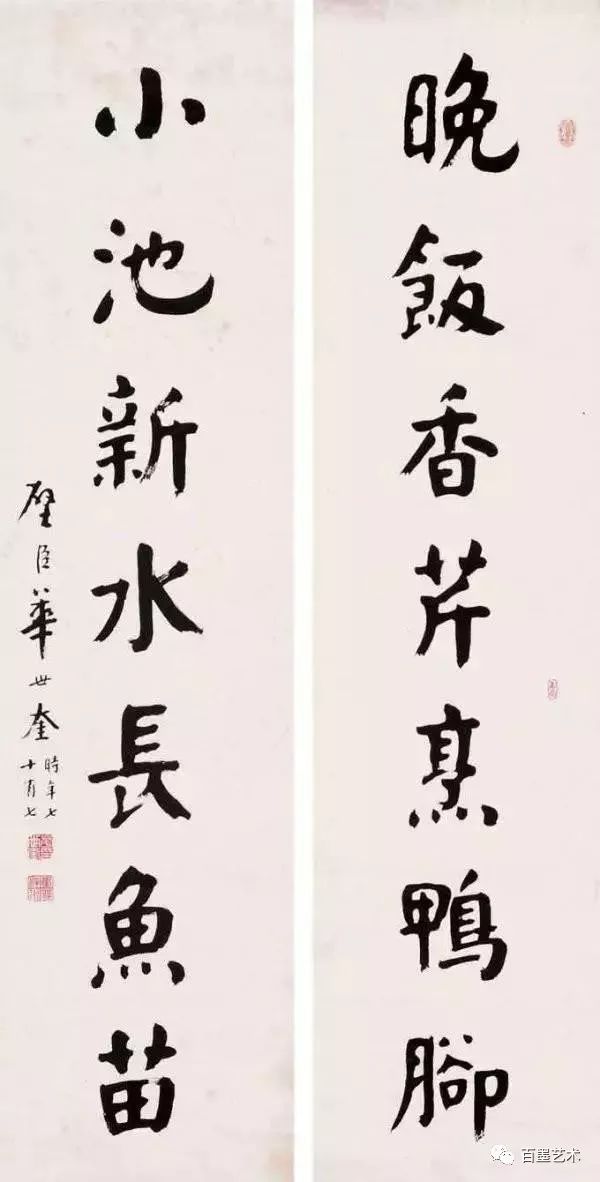 晚飯香芹烹鴨腳
小池新水長魚苗
壁臣華世奎
時年七
十有七
百墨艺术